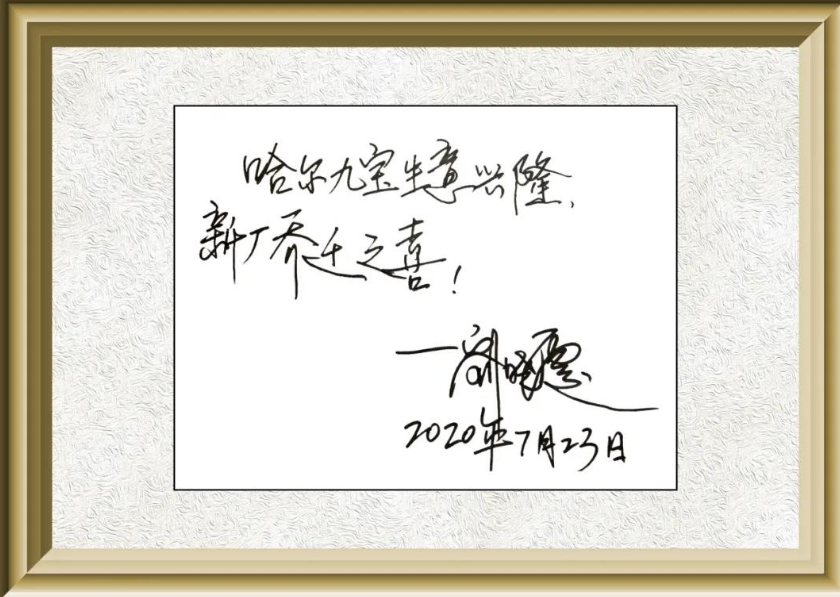 哈尔九宝生意兴隆、
新厂乔迁之喜!
2020年7月23日